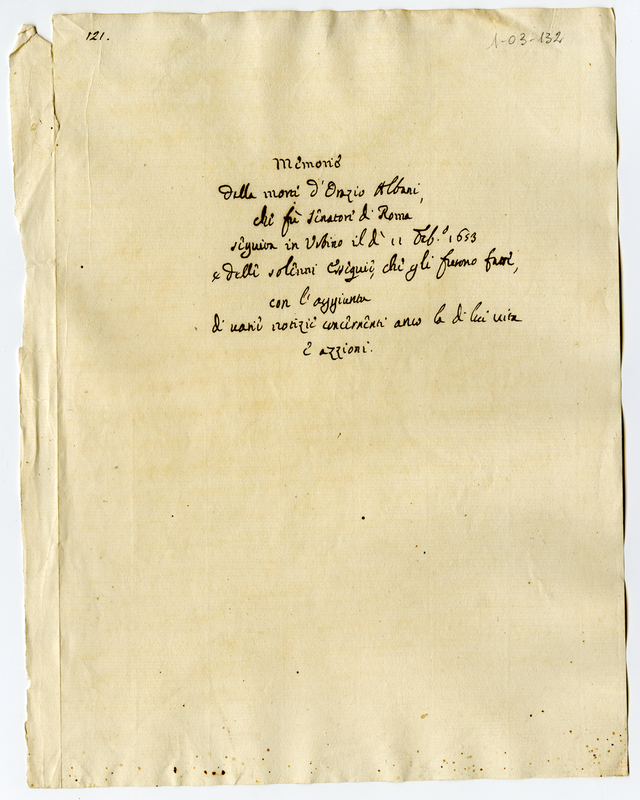 121.
1-03-132
Memorie
della morte d'Orazio Albani,
che fù Senatore di Roma
seguita in Urbino il dì 11 Feb.º 1653
e delle solenni essequie, che gli furono fatte,
con l'aggiunta
di varie notizie concernenti anco la di lui vita
e azzioni.